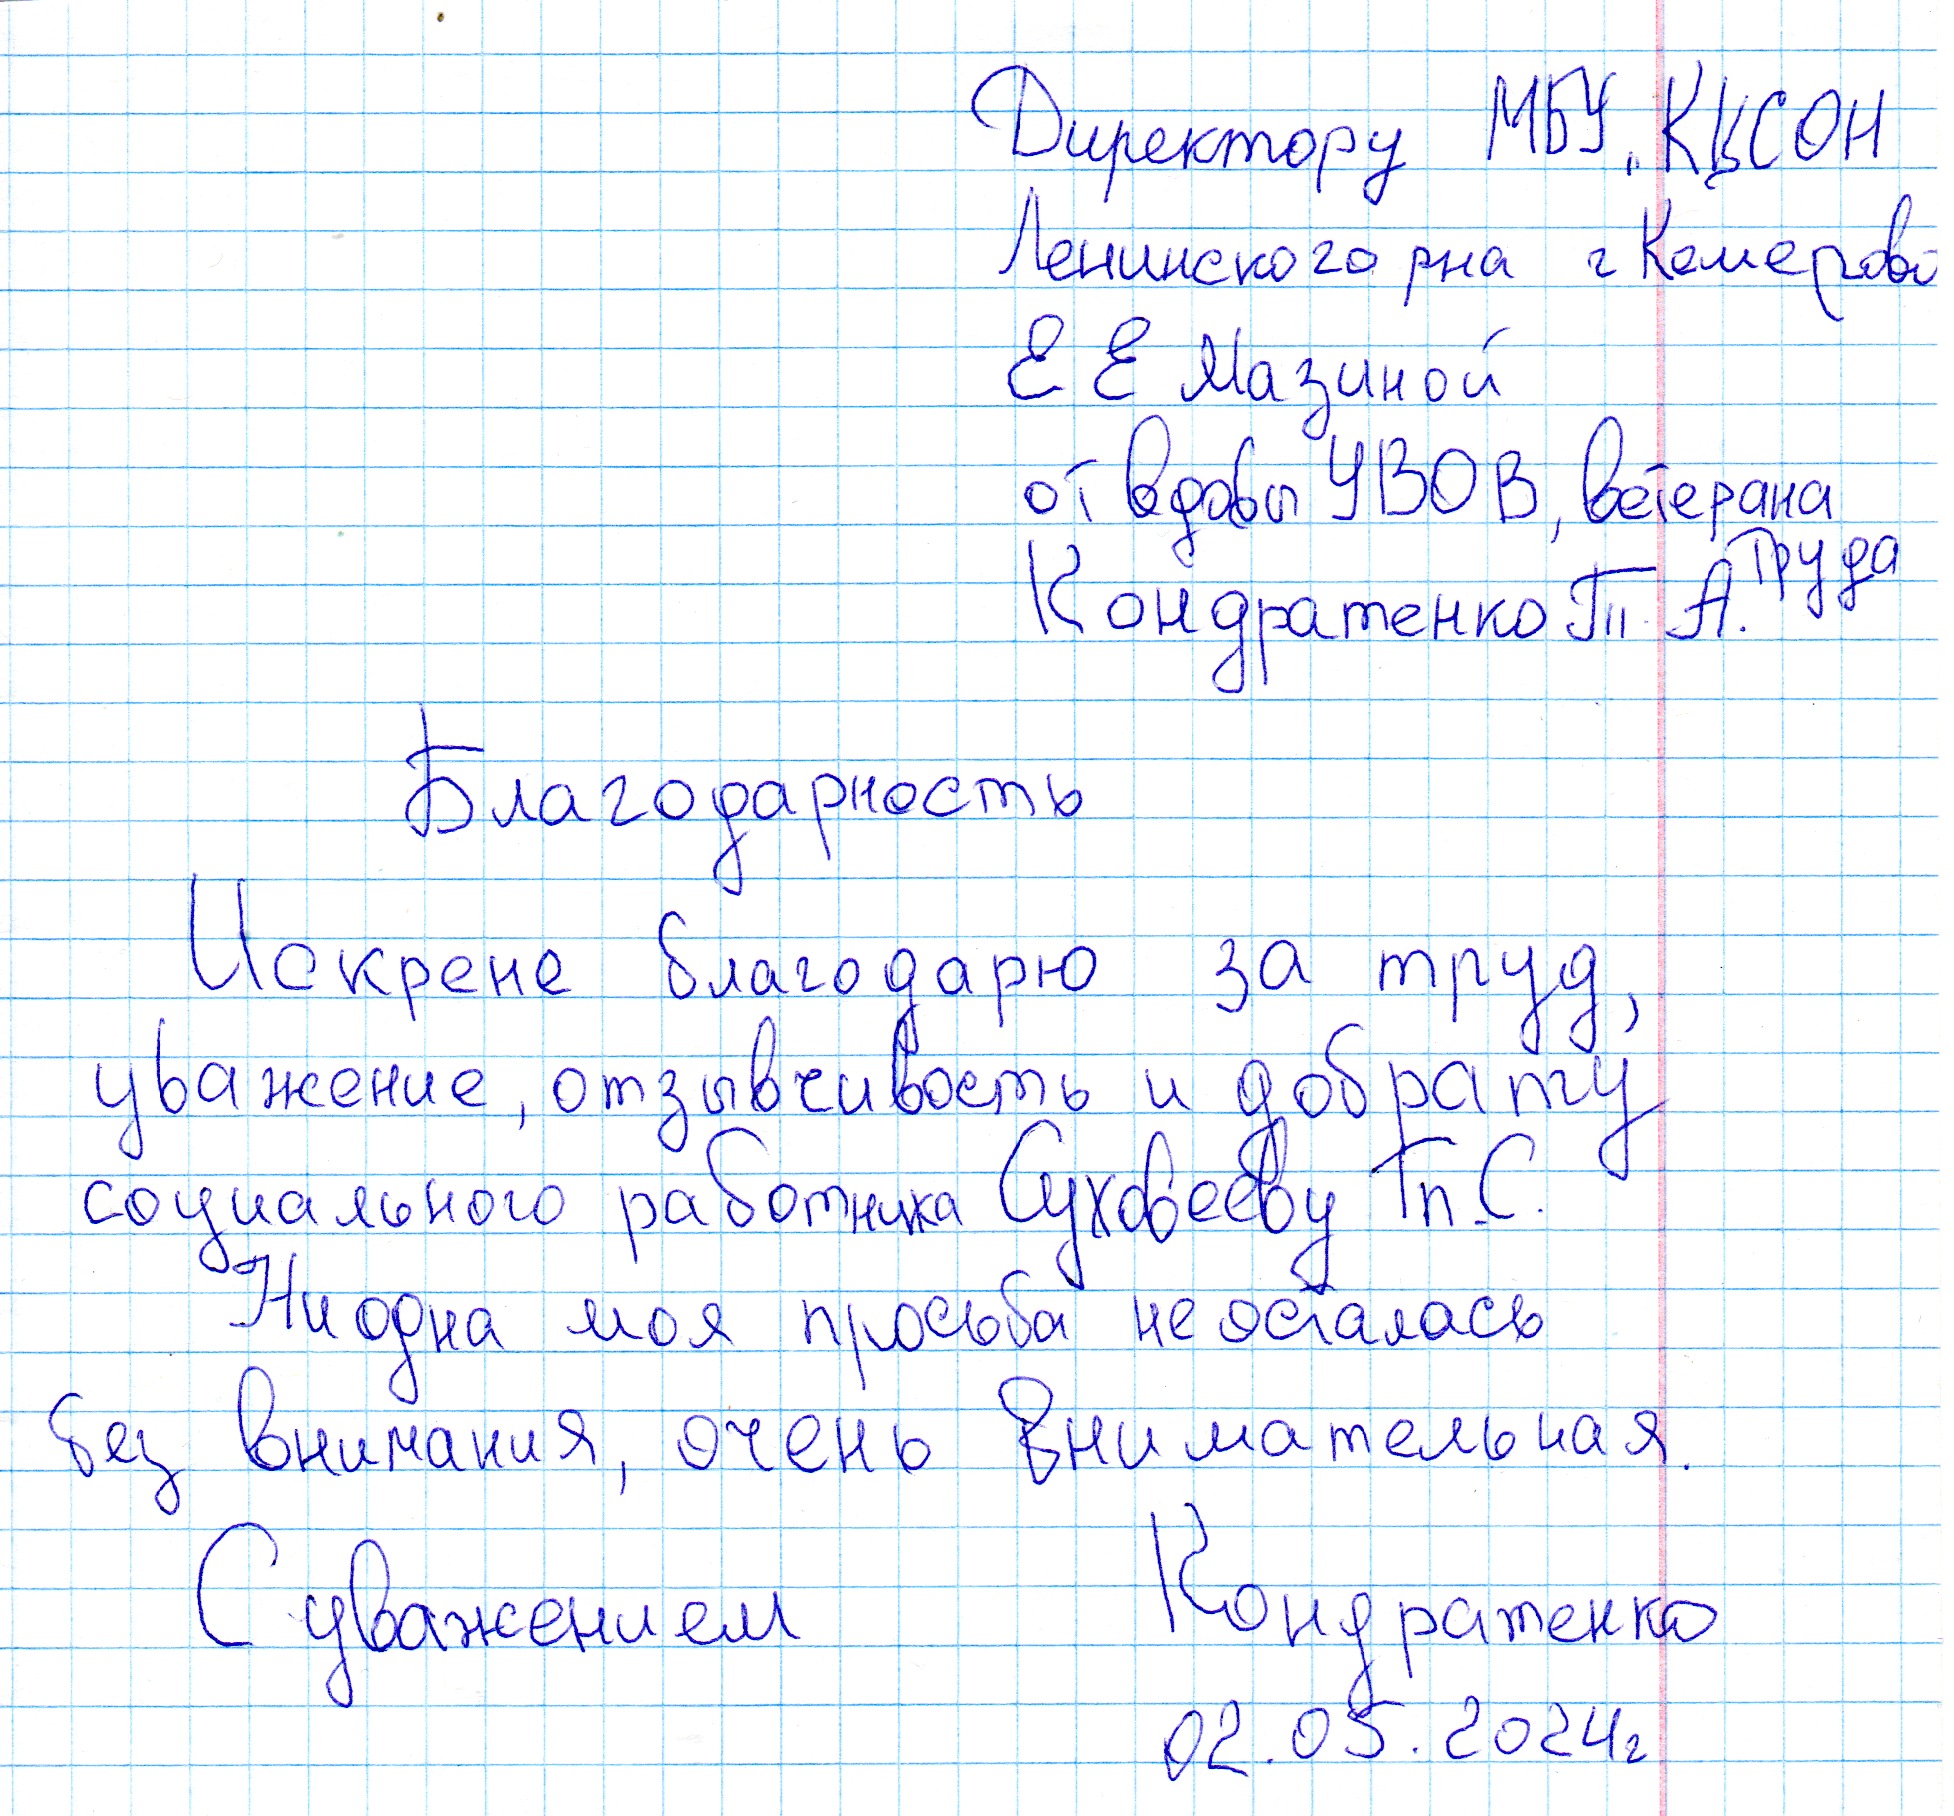 Директору МБУ „КЦСОН
Ленинского рна г Кемерово
Е Е Мазиной
от вдовы УВОВ, ветерана
труда
Кондратенко Т. А.
Благодарность
Искрене благодарю за труд,
уважение, отзывчивость и добрату
социального работника Суховееву Т.С.
Ни одна моя просьба не осталась
без внимания, очень внимательная.
С уважением Кондратенко
02.05.2024г